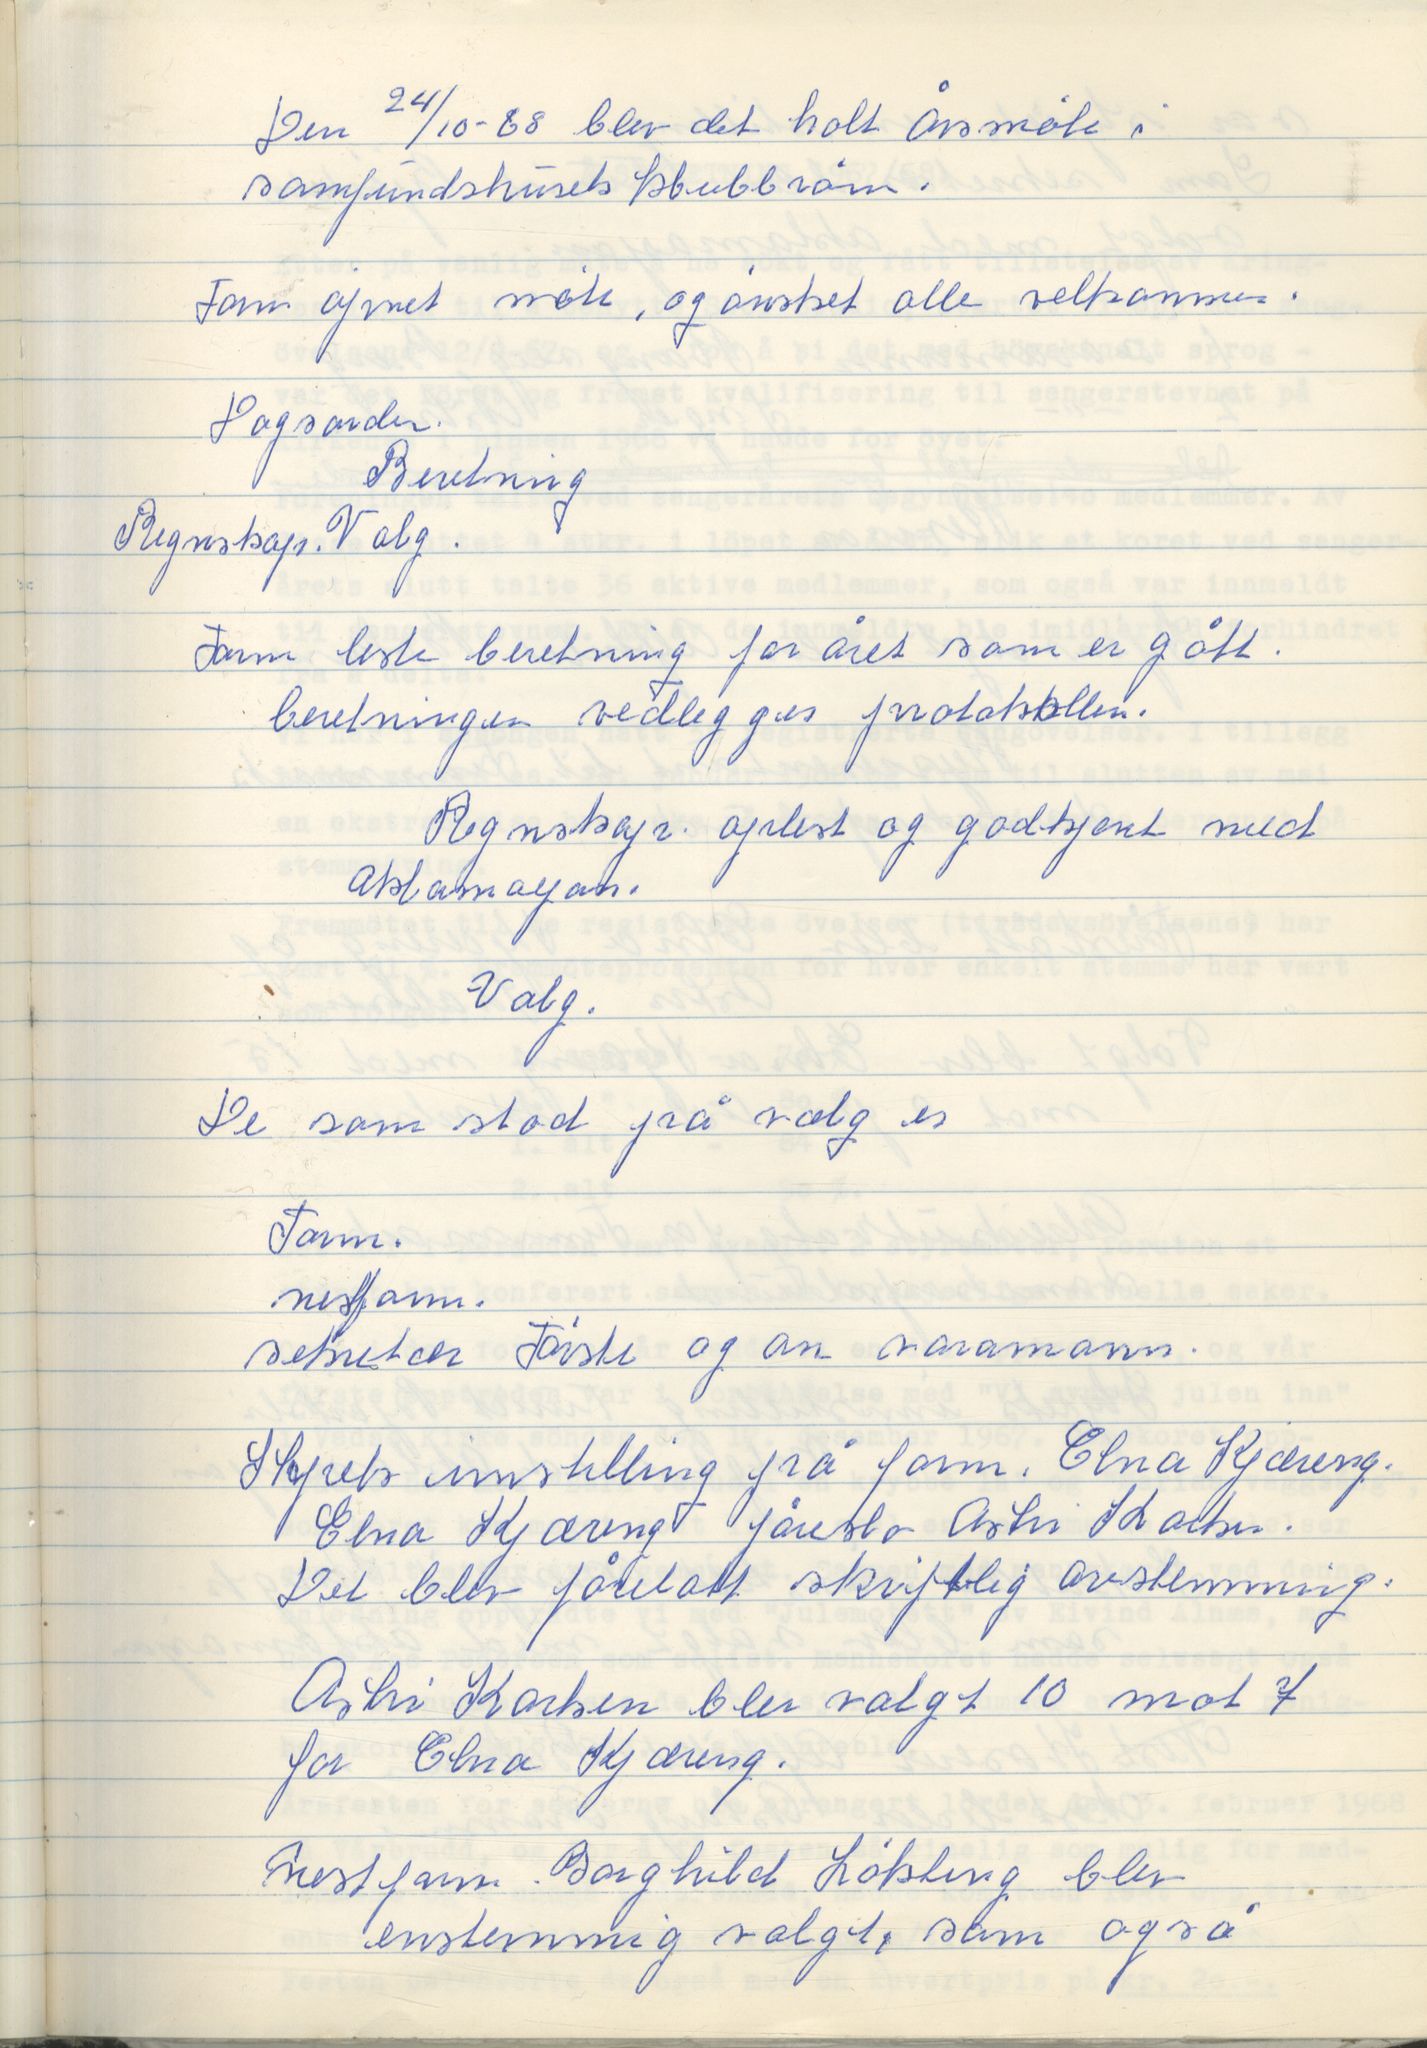 Den 24/10-68 blev det holt Årsmöte i
samfundshusets klubbrom.
Form åpnet möte, og önsket alle velkommen.
Dagsorden.
Beretning
Regnskap. Valg.
Form leste beretning for året som er gått.
beretningen vedlegges protokollen.
Regnskap. oplest og godkjent med
aklamasjon.
Valg.
De som stod på valg er
Form.
nestform.
sekretær Förste og an varamann.
Styrets innstilling på form. Elna Kjæreng.
Elna Kjæreng föreslo Astri Karlsen.
Det blev företatt skriftlig avstemming.
Astri Karlsen blev valgt 10 mot 7
for Elna Kjæreng.
Nestform. Borghild Lökseng blev
enstemmig valgt, som også